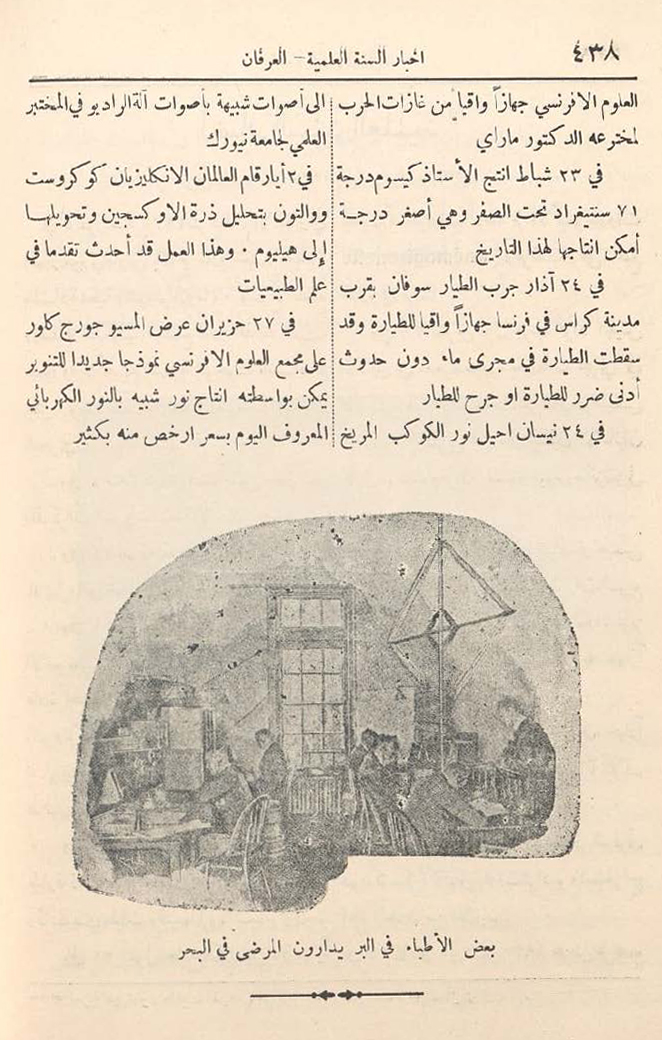 ٤٣٨
اخبار السنة العلمية - العرفان
العلوم الافرنسي جهازاً واقياً من غازات الحرب
لمخترعه الدكتور ماراي
في ٢٣ شباط انتج الأستاذ كيسوم درجة
٧١ سنتيغراد تحت الصفر وهي أصغر درجة
أمكن انتاجها لهذا التاريخ
في ٢٤ آذار جرب الطيار سوفان بقرب
مدينة كراس في فرنسا جهازاً واقيا للطيارة وقد
سقطت الطيارة في مجرى ماء دون حدوث
أدنى ضرر للطيارة او جرح للطيار
في ٢٤ نيسان احيل نور الكوكب المريخ
الى أصوات شبيهة بأصوات آلة الراديو في المختبر
العلمي لجامعة نيورك
في ٢ أيار قام العالمان الانكليزيان كوكروست
ووالتون بتحليل ذرة الاوكسجين وتحويلها
إلى هيليوم . وهذا العمل قد أحدث تقدما في
علم الطبيعيات
في ٢٧ حزيران عرض المسيو جورج كلور
على مجمع العلوم الافرنسي نموذجا جديدا للتنوير
يمكن بواسطته انتاج نور شبيه بالنور الكهربائي
المعروف اليوم بسعر ارخص منه بكثير
بعض الأطباء في البر يدارون المرضى في البحر